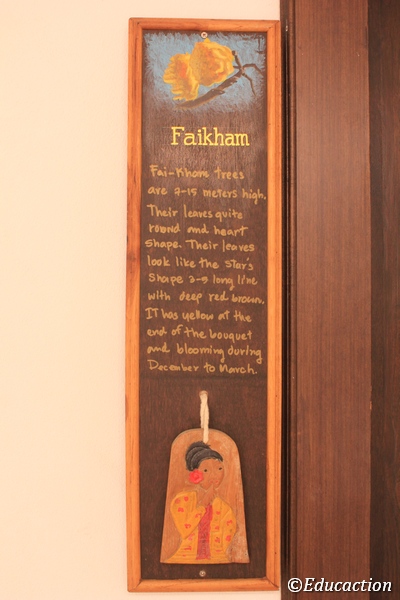 Faikham
Fai-Kham trees
are 7-15 meters high.
Their leaves quite
round and heart
shape. Their leaves
look like the star's
shape 3-5 long line
with deep red brown.
It has yellow at the
end of the bouquet
and blooming during
December to March.
©Educaction